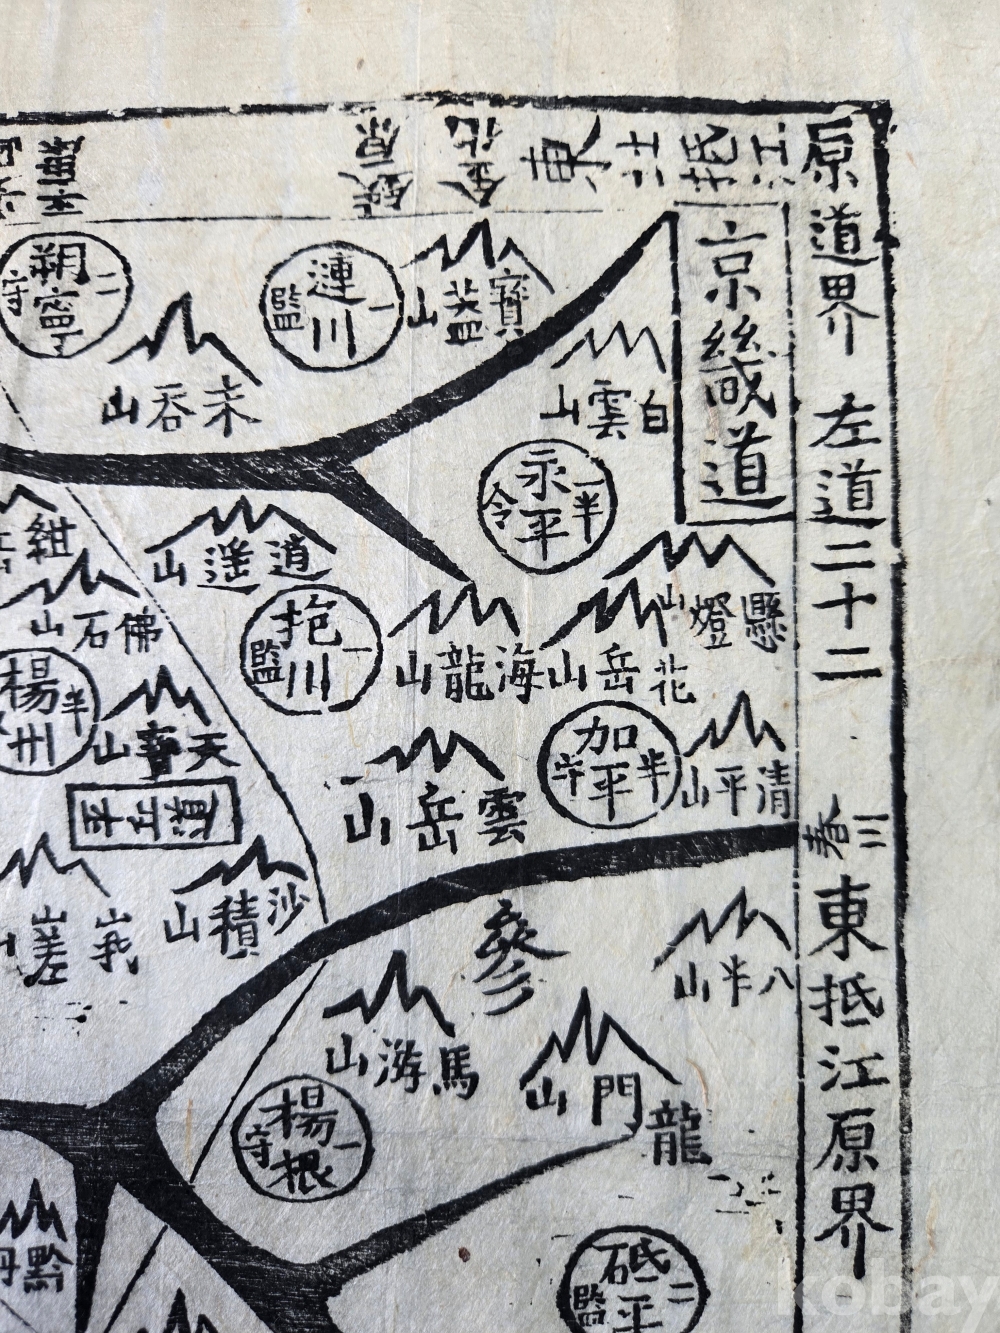 京畿道
原道界 左道二十二
東抵江原界
江
東
金化
鐵原
朔寧
守
二
漣川
監
一
寶盖山
未吞山
白雲山
永平
令
一半
紺
逍遥山
佛石山
抱川
監
一
懸燈山
海龍山
花岳山
楊州
半
天寶山
加平
半
清平山
雲岳山
平丘道
春
三
沙積山
峩嵯山
參
八半山
馬游山
龍門山
楊根
守
一
砥平
監
二
黔丹
kobay